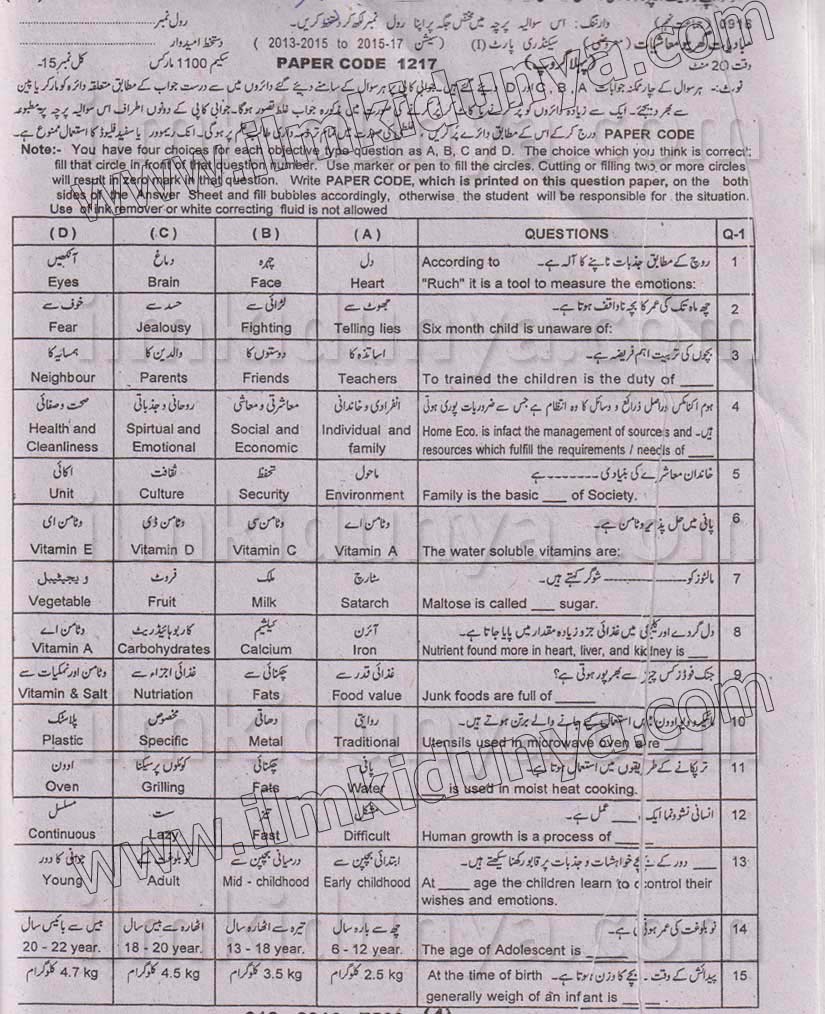 رول نمبر وارننگ:۔ اس سوالیہ پرچہ میں مختص جگہ پر اپنا رول نمبر لکھ کر دستخط کریں۔ 0916
دستخط امیدوار (سیشن 2013-2015 to 2015-17) سیکنڈری پارٹ (I)
کل نمبر -15 سکیم 1100 مارکس PAPER CODE 1217 (پہلا گروپ) وقت 20 منٹ
PAPER CODE
Note:- You have four choices for each objective type question as A, B, C and D. The choice which you think is correct;
fill that circle in front of that question number. Use marker or pen to fill the circles. Cutting or filling two or more circles
will result in zero mark in that question. Write PAPER CODE, which is printed on this question paper, on the both
sides of the Answer Sheet and fill bubbles accordingly, otherwise the student will be responsible for the situation.
Use of ink remover or white correcting fluid is not allowed
( D ) ( C ) ( B ) ( A ) QUESTIONS Q-1
آنکھیں دماغ چہرہ دل روچ کے مطابق جذبات ناپنے کا آلہ ہے۔ According to 1
Eyes Brain Face Heart "Ruch" it is a tool to measure the emotions:
خوف سے حسد سے لڑائی سے جھوٹ سے چھ ماہ تک کی عمر کا بچہ ناواقف ہوتا ہے۔ 2
Fear Jealousy Fighting Telling lies Six month child is unaware of:
ہمسائیہ کا والدین کا دوستوں کا اساتذہ کا بچوں کی تربیت اہم فریضہ ہے۔ 3
Neighbour Parents Friends Teachers To trained the children is the duty of ____
صحت و صفائی روحانی و جذباتی معاشرتی و معاشی انفرادی و خاندانی ہوم اکنامکس دراصل ذرائع و وسائل کا وہ انتظام ہے جس سے ضروریات پوری ہوتی 4
Health and Spirtual and Social and Individual and Home Eco. is infact the management of sources and ہیں۔
Cleanliness Emotional Economic family resources which fulfill the requirements / needs of ____
اکائی ثقافت تحفظ ماحول خاندان معاشرے کی بنیادی -------- ہے 5
Unit Culture Security Environment Family is the basic ___ of Society.
وٹامن ای وٹامن ڈی وٹامن سی وٹامن اے پانی میں حل پذیر وٹامن ہے۔ 6
Vitamin E Vitamin D Vitamin C Vitamin A The water soluble vitamins are:
ویجیٹیبل فروٹ ملک سٹارچ مالٹوز کو -------- شوگر کہتے ہیں۔ 7
Vegetable Fruit Milk Satarch Maltose is called ___ sugar.
وٹامن اے کاربوہائیڈریٹ کیلشیم آئرن دل گردے اور کلیجی میں غذائی جزو زیادہ مقدار میں پایا جاتا ہے۔ 8
Vitamin A Carbohydrates Calcium Iron Nutrient found more in heart, liver, and kidney is ___
وٹامن اور نمکیات سے غذائی اجزاء سے چکنائی سے غذائی قدر سے جنک فوڈز کس چیز سے بھرپور ہوتی ہے؟ 9
Vitamin & Salt Nutriation Fats Food value Junk foods are full of ____
پلاسٹک مخصوص دھاتی روایتی مائیکرو ویو اوون میں استعمال کیے جانے والے برتن ہوتے ہیں۔ 10
Plastic Specific Metal Traditional Utensils used in microwave oven are ____
اوون کوئلوں پر سینکنا چکنائی پانی تر پکانے کے طریقوں میں استعمال ہوتا ہے۔ 11
Oven Grilling Fats Water ___ is used in moist heat cooking.
مسلسل ست تیز مشکل انسانی نشوونما ایک ____ عمل ہے۔ 12
Continuous Lazy Fast Difficult Human growth is a process of ____
جوانی کا دور نو بلوغت کے درمیانی بچپن سے ابتدائی بچپن سے ____ دور کے بچے خواہشات و جذبات پر قابو رکھنا سیکھتے ہیں۔ 13
Young Adult Mid - childhood Early childhood At ____ age the children learn to control their
wishes and emotions.
بیس سے بائیس سال اٹھارہ سے بیس سال تیرہ سے اٹھارہ سال چھ سے بارہ سال نو بلوغت کی عمر ہوتی ہے۔ 14
20 - 22 year. 18 - 20 year. 13 - 18 year. 6 - 12 year. The age of Adolescent is ____
4.7 kg کلوگرام 4.5 kg کلوگرام 3.5 kg کلوگرام 2.5 kg کلوگرام پیدائش کے وقت بچے کا وزن ہوتا ہے۔ At the time of birth 15
generally weigh of an infant is ____
www.ilmkidunya.com
www.ilmkidunya.com
ilmkidunya.com
ilmkidunya.com
ilmkidunya.com
ilmkidunya.com